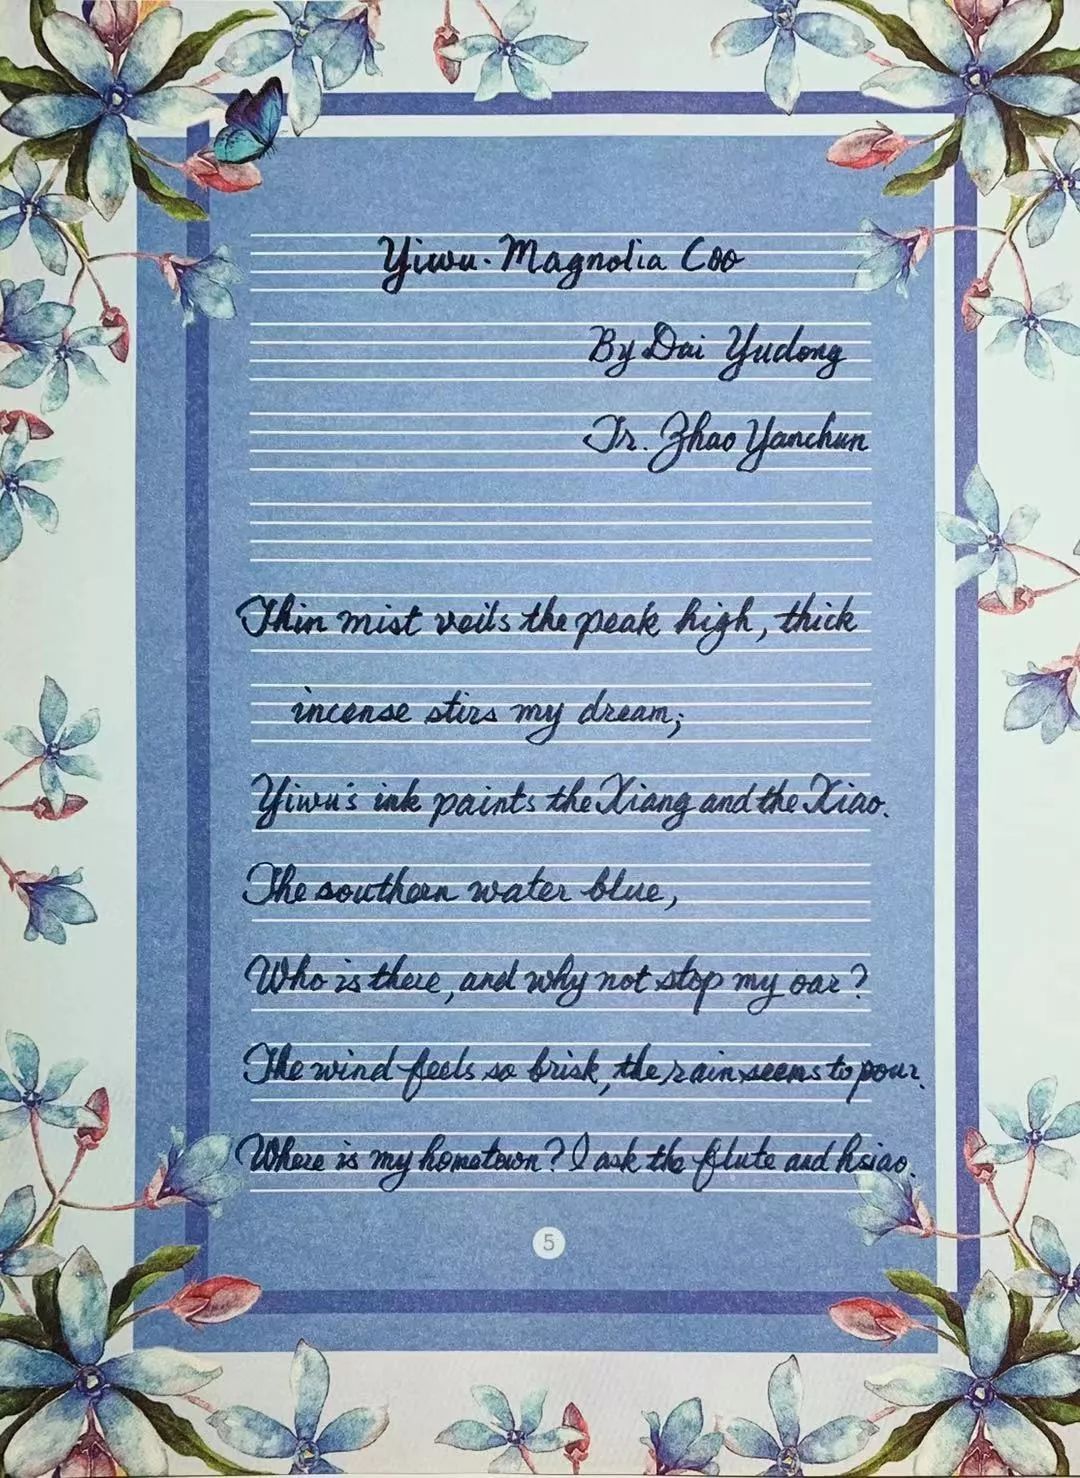 Yiwu · Magnolia Coo
By Dai Yudong
Tr. Zhao Yanchun
Thin mist veils the peak high, thick
incense stirs my dream;
Yiwu's ink paints the Xiang and the Xiao.
The southern water blue,
Who is there, and why not stop my oar?
The wind feels so brisk, the rain seems to pour.
Where is my hometown? I ask the flute and hsiao.
5